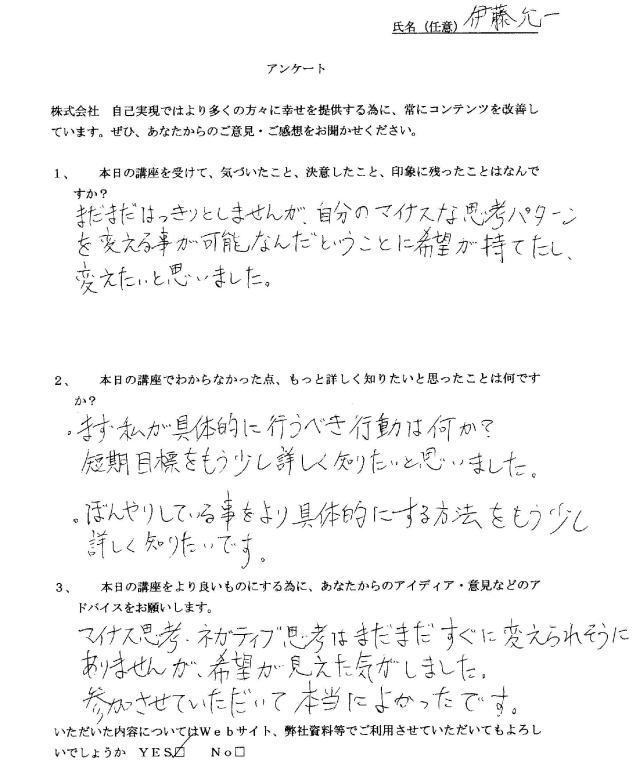 氏名（任意） 伊藤允一
アンケート
株式会社　自己実現ではより多くの方々に幸せを提供する為に、常にコンテンツを改善し
ています。ぜひ、あなたからのご意見・ご感想をお聞かせください。
１、　本日の講座を受けて、気づいたこと、決意したこと、印象に残ったことはなんで
すか？
まだまだはっきりとしませんが、自分のマイナスな思考パターン
を変える事が可能なんだということに希望が持てたし、
変えたいと思いました。
２、　本日の講座でわからなかった点、もっと詳しく知りたいと思ったことは何です
か？
。まず私が具体的に行うべき行動は何か？
短期目標をもう少し詳しく知りたいと思いました。
。ぼんやりしている事をより具体的にする方法をもう少し
詳しく知りたいです。
３、　本日の講座をより良いものにする為に、あなたからのアイディア・意見などのア
ドバイスをお願いします。
マイナス思考・ネガティブ思考はまだまだすぐに変えられそうに
ありませんが、希望が見えた気がしました。
参加させていただいて本当によかったです。
いただいた内容についてはＷｅｂサイト、弊社資料等でご利用させていただいてもよろし
いでしょうか　ＹＥＳ☑　Ｎｏ□